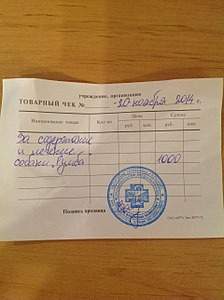 учреждение, организация
ТОВАРНЫЙ ЧЕК № 20 ноября 2014 г.
Наименование товара Кол-во Цена Сумма
руб. коп. руб. коп.
За содержание
и лечение
собаки "Румба" 1000
Подпись продавца